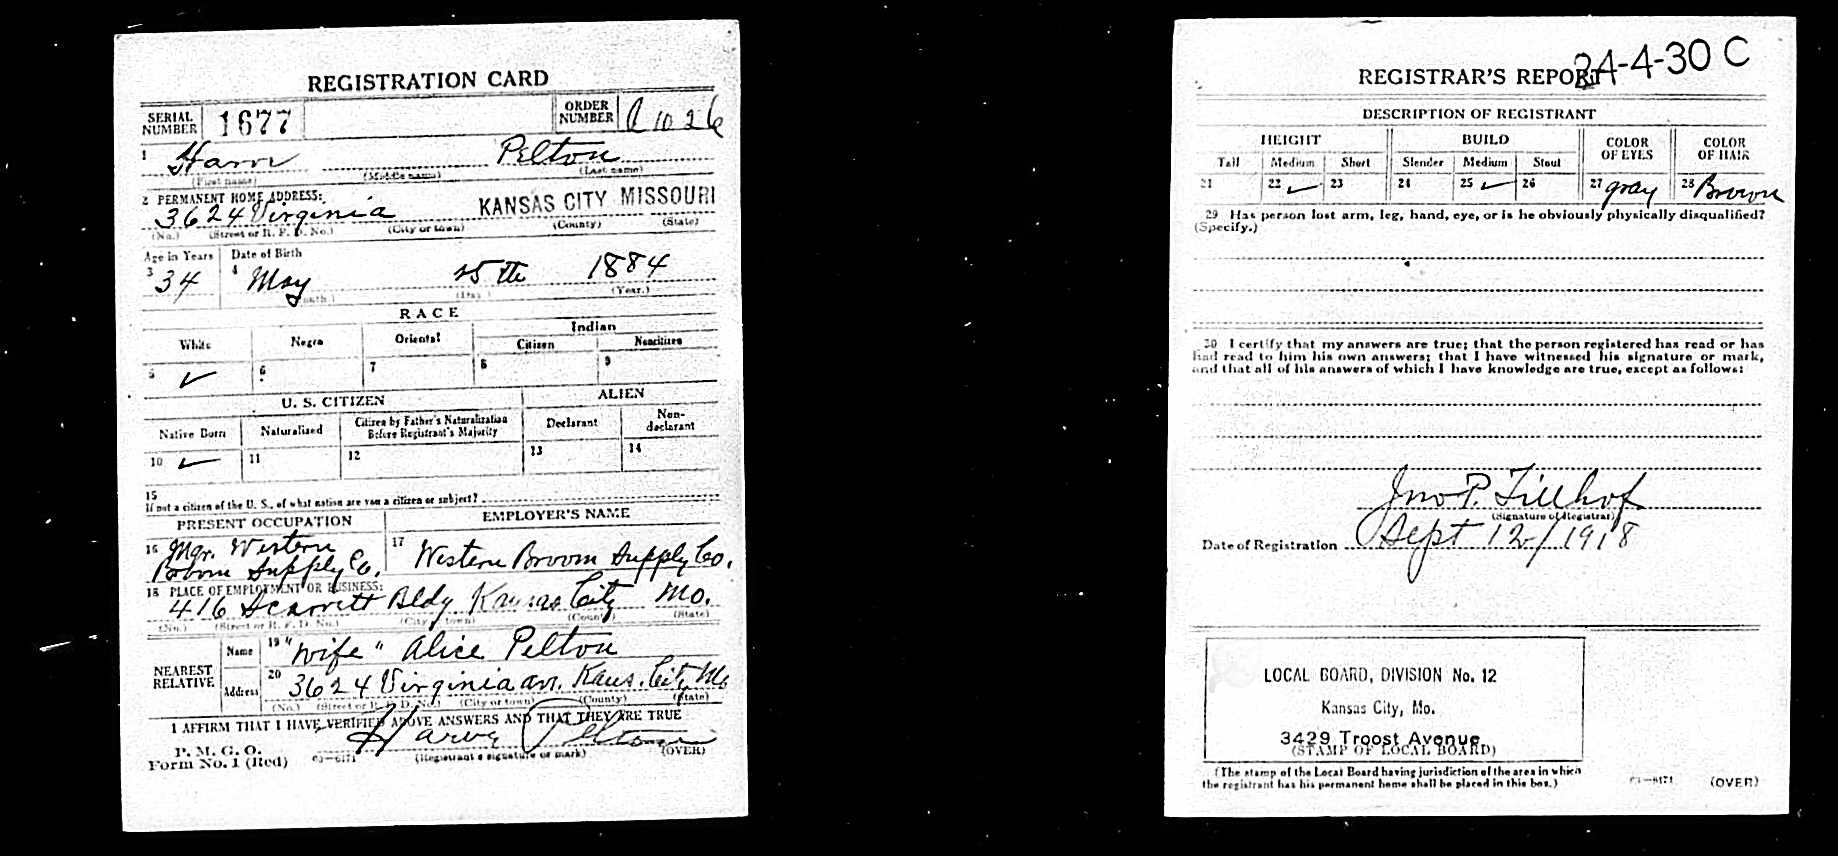 REGISTRATION CARD
SERIAL NUMBER 1677 ORDER NUMBER A1026
1 Harry Pelton
(First name) (Middle name) (Last name)
2 PERMANENT HOME ADDRESS:
3624 Virginia KANSAS CITY MISSOURI
(No.) (Street or R. F. D. No.) (City or town) (County) (State)
Age in Years Date of Birth
3 34 4 May 25th 1884
(Month.) (Day.) (Year.)
RACE
White Negro Oriental Indian
Citizen Noncitizen
5 ✓ 6 7 8 9
U. S. CITIZEN ALIEN
Native Born Naturalized Citizen by Father's Naturalization Before Registrant's Majority Declarant Non-declarant
10 ✓ 11 12 13 14
15
If not a citizen of the U. S., of what nation are you a citizen or subject?
PRESENT OCCUPATION EMPLOYER'S NAME
16 Mgr. Western Broom Supply Co. 17 Western Broom Supply Co.
18 PLACE OF EMPLOYMENT OR BUSINESS:
416 Scarritt Bldg Kansas City Mo.
(No.) (Street or R. F. D. No.) (City or town) (County) (State)
NEAREST RELATIVE Name 19 "Wife" Alice Pelton
Address 20 3624 Virginia av. Kans. City Mo
(No.) (Street or R. F. D. No.) (City or town) (County) (State)
I AFFIRM THAT I HAVE VERIFIED ABOVE ANSWERS AND THAT THEY ARE TRUE
P. M. G. O.
Form No. 1 (Red) 03—6171 Harry Pelton
(Registrant's signature or mark) (OVER)
REGISTRAR'S REPORT 24-4-30 C
DESCRIPTION OF REGISTRANT
HEIGHT BUILD COLOR OF EYES COLOR OF HAIR
Tall Medium Short Slender Medium Stout
21 22 ✓ 23 24 25 ✓ 26 27 gray 28 Brown
29 Has person lost arm, leg, hand, eye, or is he obviously physically disqualified?
(Specify.)
30 I certify that my answers are true; that the person registered has read or has
had read to him his own answers; that I have witnessed his signature or mark,
and that all of his answers of which I have knowledge are true, except as follows:
Jno P.
(Signature of Registrar)
Date of Registration Sept 12/1918
LOCAL BOARD, DIVISION No. 12
Kansas City, Mo.
3429 Troost Avenue
(STAMP OF LOCAL BOARD)
(The stamp of the Local Board having jurisdiction of the area in which
the registrant has his permanent home shall be placed in this box.)
03—6171 (OVER)